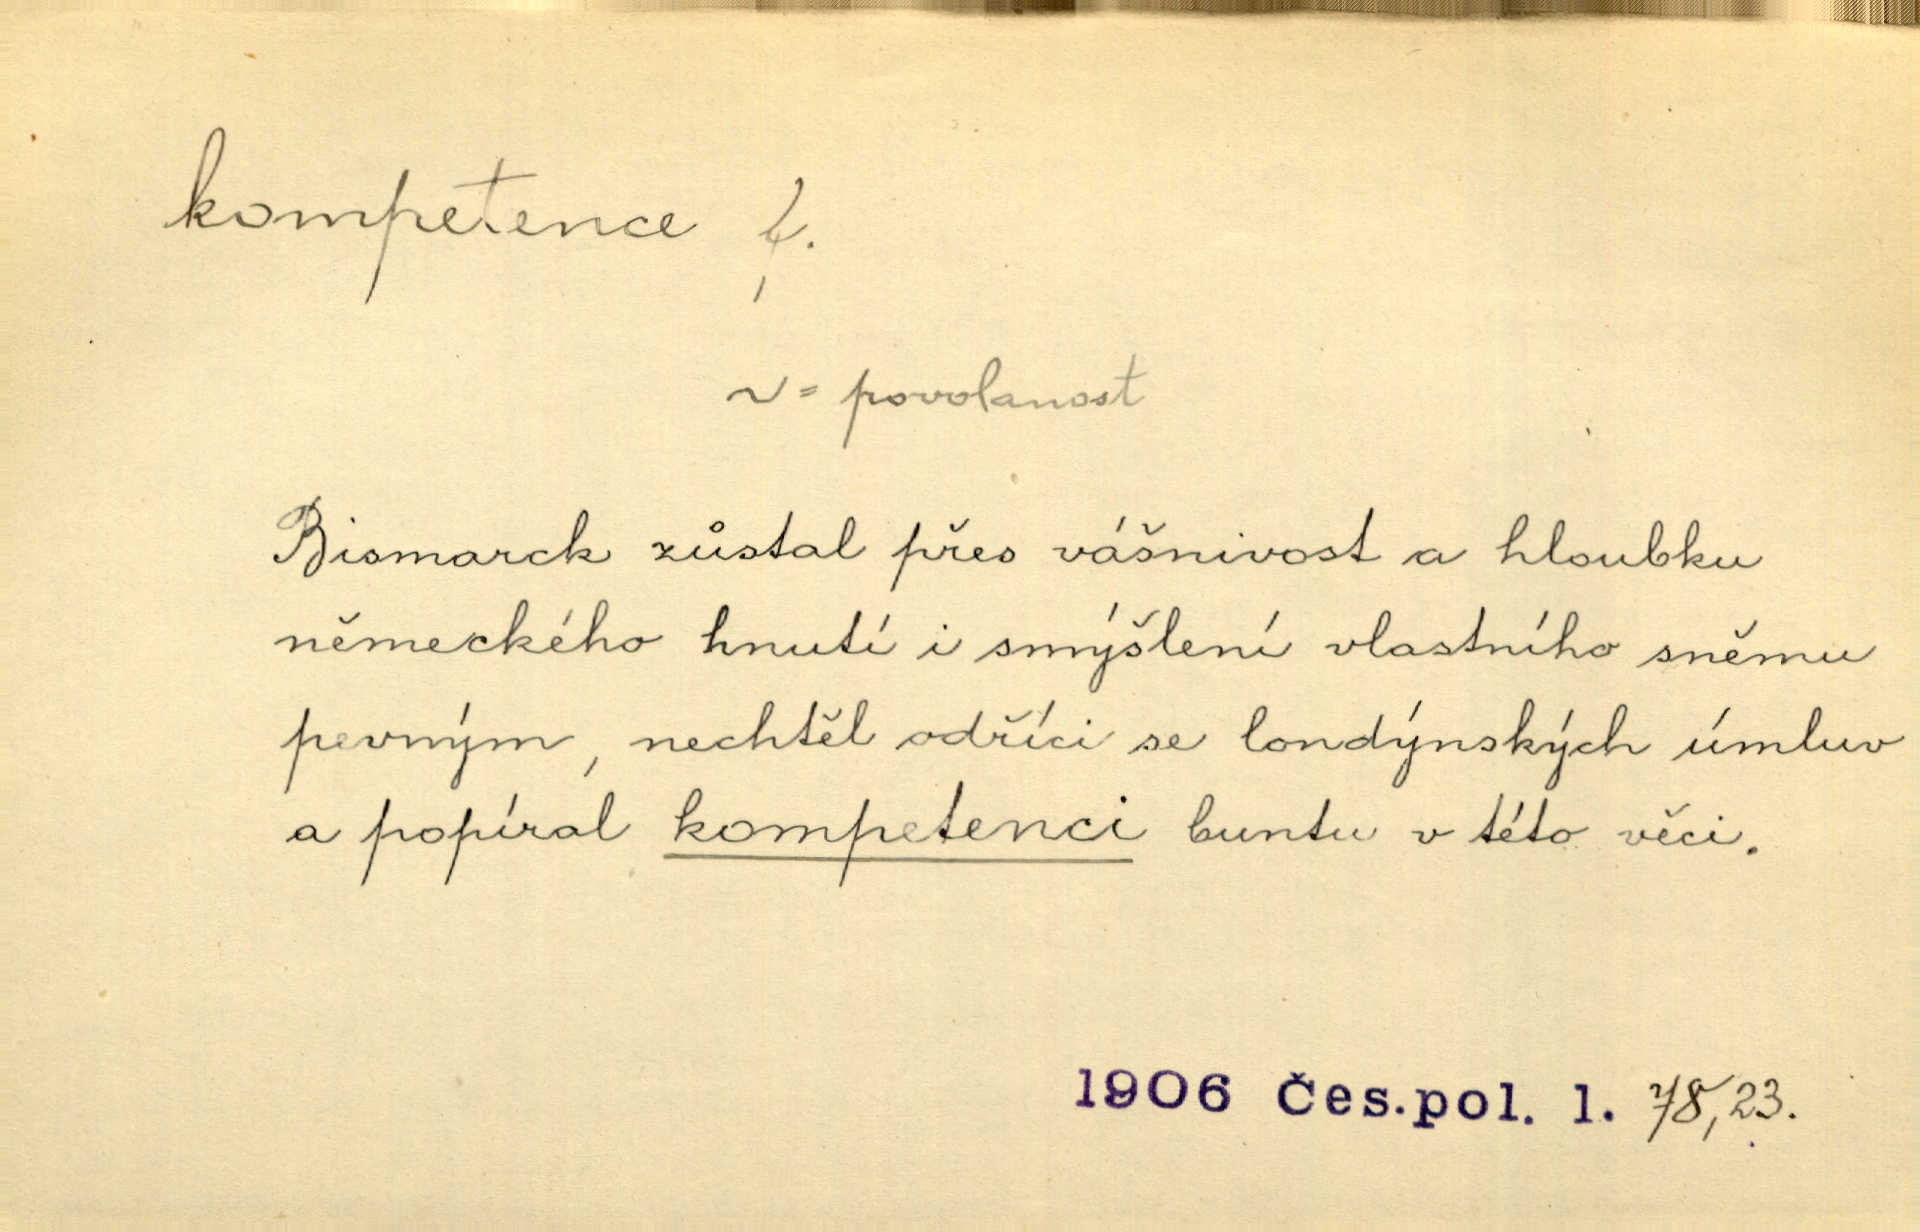 kompetence f.
~ = povolanost
Bismarck zůstal přes vášnivost a hloubku
německého hnutí i smýšlení vlastního sněmu
pevným, nechtěl odříci se londýnských úmluv
a popíral kompetenci buntu v této věci.
1906 Čes. pol. l. 78, 23.